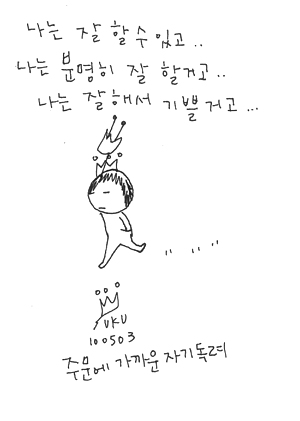 나는 잘 할 수 있고..
나는 분명히 잘 할거고..
나는 잘해서 기쁠거고...
UKU
100503
주문에 가까운 자기독려